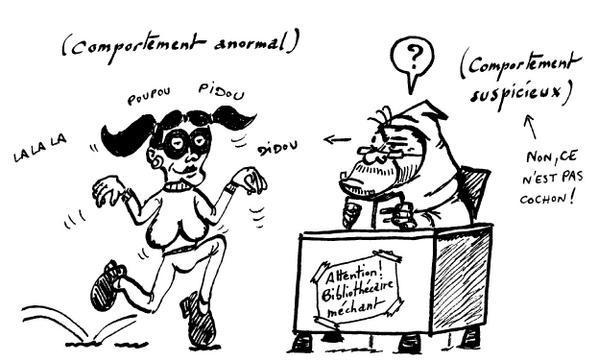 (Comportement anormal)
POUPOU PIDOU
LA LA LA
DIDOU
?
(Comportement
suspicieux)
NON, CE
N'EST PAS
COCHON!
Attention!
Bibliothécaire
méchant